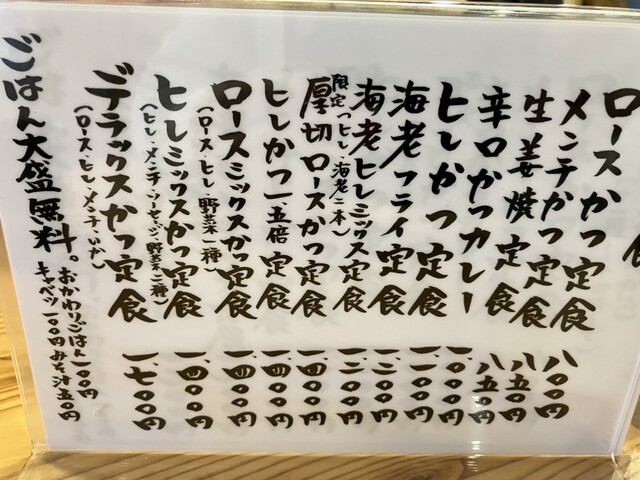 ロースかつ定食 八〇〇円
メンチかつ定食 八五〇円
生姜焼定食 八五〇円
辛口かつカレー 一、〇〇〇円
ヒレかつ定食 一、一〇〇円
海老フライ定食 一、二〇〇円
海老ヒレミックス定食 一、二〇〇円
限定(ヒレ・海老二本)
厚切ロースかつ定食 一、四〇〇円
ヒレかつ一、五倍定食 一、四〇〇円
ロースミックスかつ定食 一、四〇〇円
(ロース・ヒレ・野菜二種)
ヒレミックスかつ定食 一、四〇〇円
(ヒレ・メンチ・ソーセージ・野菜二種)
デラックスかつ定食 一、七〇〇円
(ロース・ヒレ・メンチ・いか)
ごはん大盛無料。おかわりごはん一〇〇円
キャベツ一〇〇円みそ汁五〇円